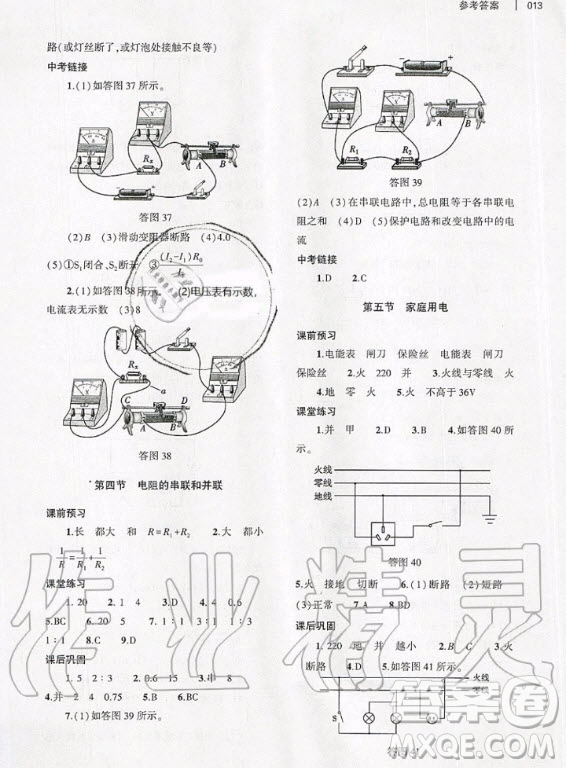 参考答案 013
路(或灯丝断了,或灯泡处接触不良等)
中考链接
1.(1)如答图 37 所示。
答图 37
(2)B (3)滑动变阻器断路 (4)4.0
(5)①S₁闭合、S₂断开 ③(I₂-I₁)R₀/I₁
2.(1)如答图 38 所示。 (2)电压表有示数,
电流表无示数 (3)8
答图 38
第四节 电阻的串联和并联
课前预习
1.长 都大 和 R=R₁+R₂ 2.大 都小
1/R=1/R₁+1/R₂
课堂练习
1.20 2.1 4 3.D 4.D
5.BC 6.20 7.B 8.1∶1
1∶1
课后巩固
1.5 2∶3 2.D 3.串 8
4.并 2 4 0.75 5.B 6.BC
7.(1)如答图 39 所示。
答图 39
(2)A (3)在串联电路中,总电阻等于各串联电
阻之和 (4)D (5)保护电路和改变电路中的电
流
中考链接
1.D 2.C
第五节 家庭用电
课前预习
1.电能表 闸刀 保险丝 电能表 闸刀
保险丝 2.火 220 并 3.火线与零线 火
4.地 零 火 5.火 不高于 36V
课堂练习
1.并 甲 2.D 3.B 4.如答图 40 所
示。
火线
零线
地线
答图 40
5.火 接地 切断 6.(1)断路 (2)短路
(3)正常 7.A 8.B
课后巩固
1.220 地 并 越小 2.B 3.C 4.火
断路 5.D 6.如答图 41 所示。
火线
零线
S
答图 41
作业精灵
答案圈
MXQE.COM